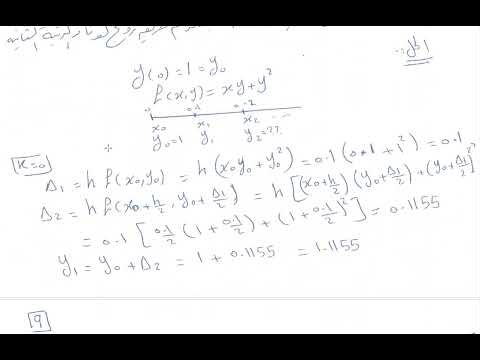 الحل:
y(0)=1=y₀
f(x,y)=xy+y²
0 0.1 0.2
x₀ x₁ x₂
y₀=1 y₁ y₂=??
K=0
Δ₁ = h f(x₀,y₀) = h(x₀y₀+y₀²) = 0.1(0*1+1²) = 0.1
Δ₂ = h f(x₀+h/2, y₀+Δ₁/2) = h[(x₀+h/2)(y₀+Δ₁/2)+(y₀+Δ₁/2)²]
= 0.1[0.1/2(1+0.1/2)+(1+0.1/2)²] = 0.1155
y₁ = y₀+Δ₂ = 1+0.1155 = 1.1155
9